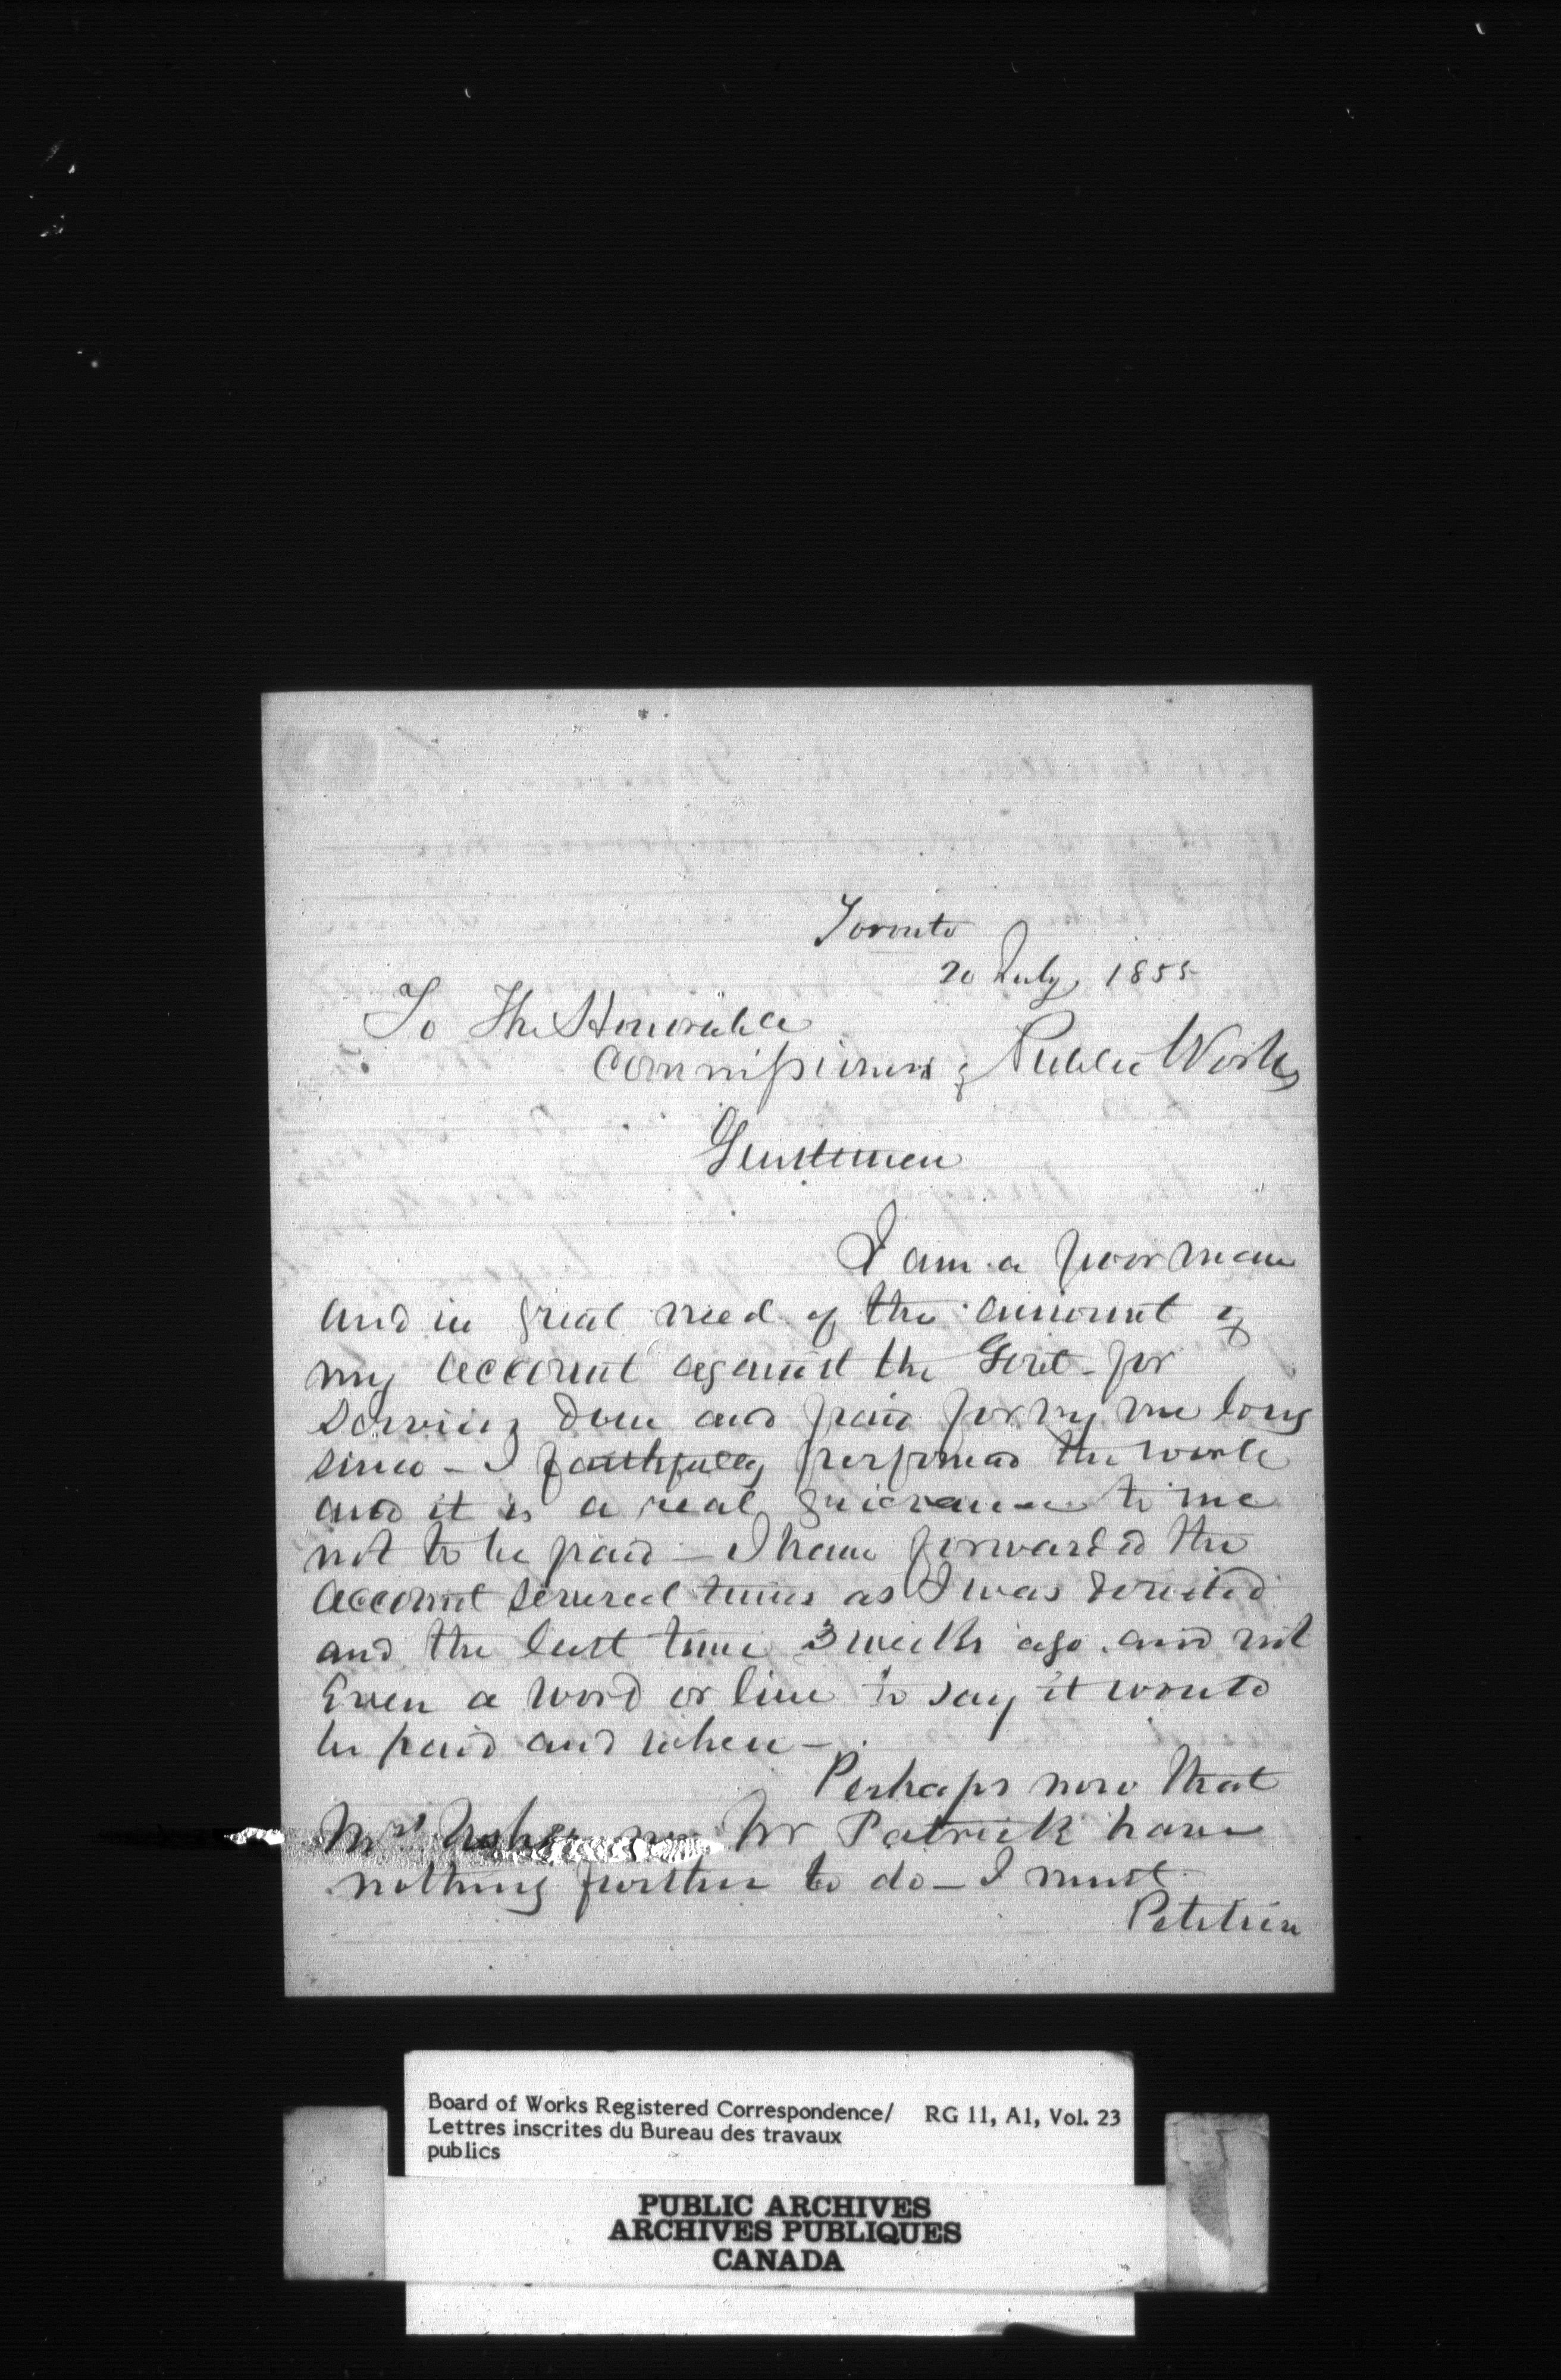 Toronto
20 July, 1855
To The Honorable
Commissioners of Public Works
Gentlemen
I am a poor man
and in great need of the amount of
my account against the Govt - for
Services done and paid for by me long
since - I faithfully performed the work
and it is a real grievance to me
not to be paid - I have forwarded the
account several times as I was directed
and the last time 3 weeks ago and not
Even a word or line to say it would
be paid and when -
Perhaps now that
Mr Patrick have
nothing further to do - I must
Petition
Board of Works Registered Correspondence/ RG 11, A1, Vol. 23
Lettres inscrites du Bureau des travaux
publics
PUBLIC ARCHIVES
ARCHIVES PUBLIQUES
CANADA